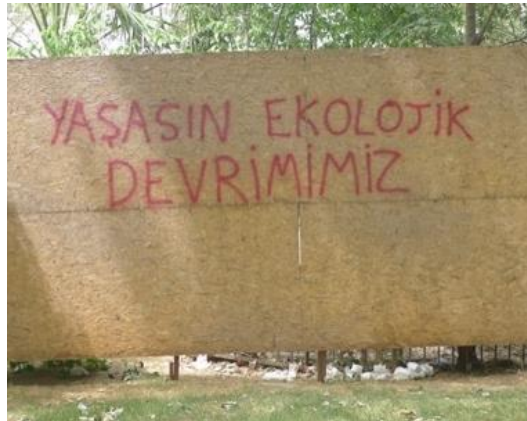 YAŞASIN EKOLOJİK
DEVRİMİMİZ